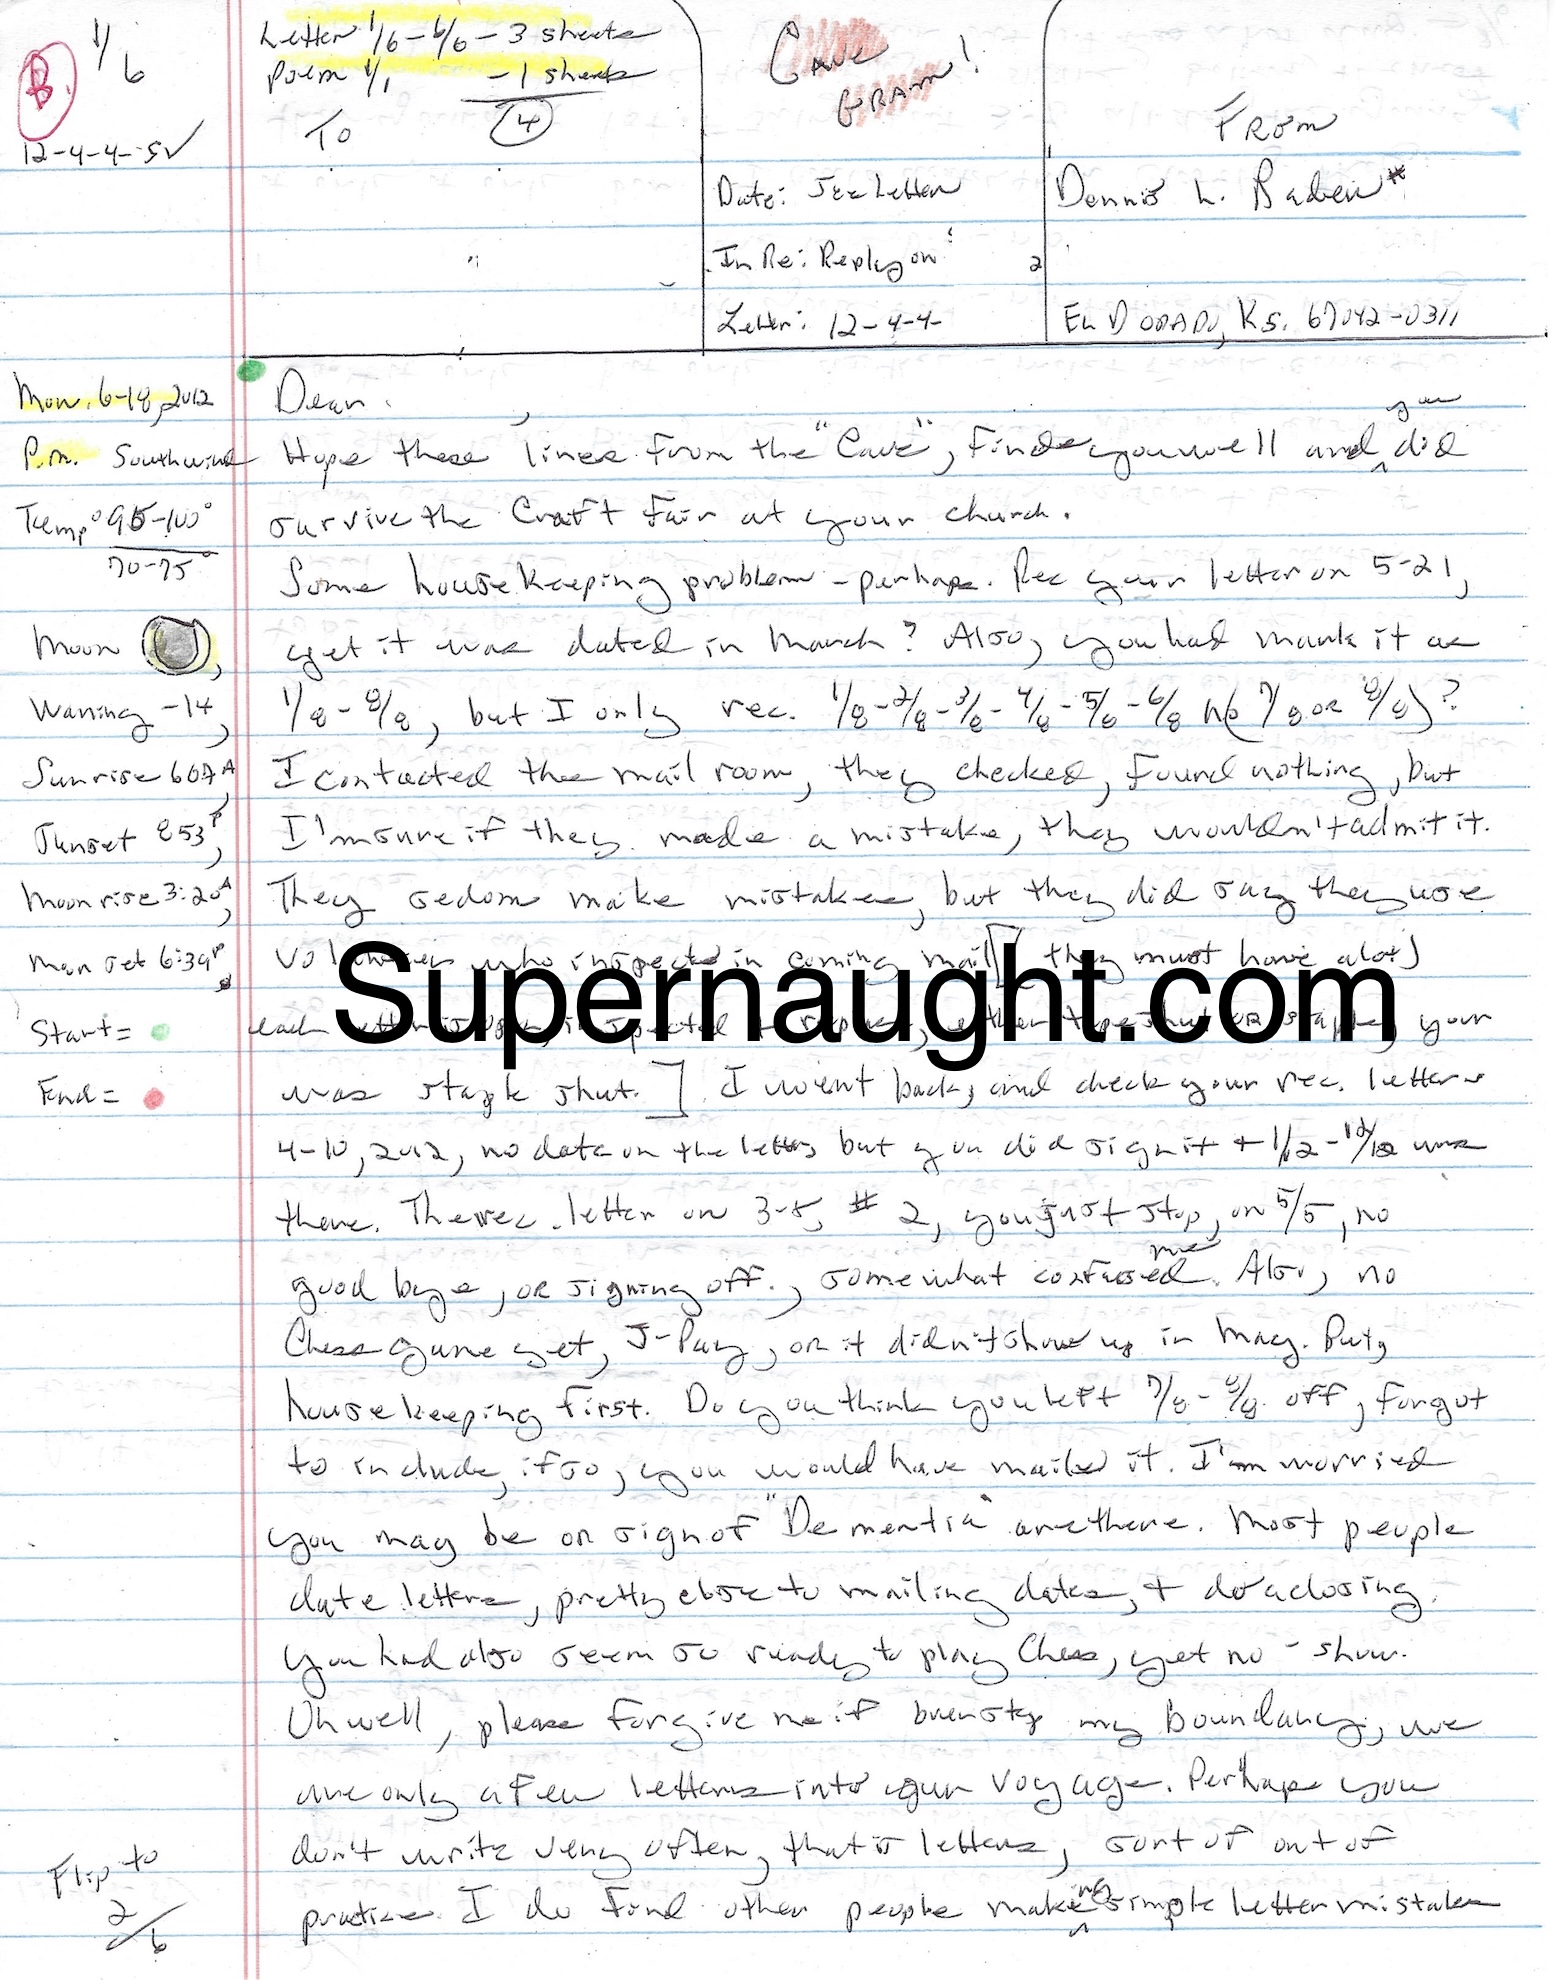 B. 1/6
Letter 1/6 - 6/6 - 3 sheets
Poem 1/1 - 1 sheet
4
12-4-4-5✓
To
Cave Gram!
From
Date: See Letter
Dennis L. Rader #
In Re: Reply on
Letter: 12-4-4-
El Dorado, Ks. 67042-0311
Mon. 6-18, 2012
P.M. Southwind
Temp° 95-100°
70-75°
Moon
Waning -14,
Sunrise 607A,
Sunset 853P,
Moonrise 3:20A,
Moon set 6:39P.
Start =
End =
Dear ,
Hope these lines from the "Cave", finds you well and you did
survive the Craft Fair at your church.
Some housekeeping problem - perhaps. Rec your letter on 5-21,
yet it was dated in March? Also, you had mark it as
1/8 - 8/8, but I only rec. 1/8-2/8-3/8-4/8-5/8-6/8 No (7/8 or 8/8)?
I contacted the mail room, they checked, found nothing, but
I'm sure if they made a mistake, they wouldn't admit it.
They sedom make mistakes, but they did say they use
who inspects in coming mail [they must have alot)
each your
was staple shut.] I went back, and check your rec. letters
4-10, 2012, no date on the letter, but you did sign it + 1/12 - 12/12 was
there. The rec. letter on 3-5, # 2, you just stop, on 5/5, no
good bye, or signing off., somewhat confused me. Also, no
Chess game yet, J-Pay, or it didn't show up in May. But,
housekeeping first. Do you think you left 7/8 - 8/8 off, forgot
to include, if so, you would have mailed it. I'm worried
you may be or sign of "Dementia" are there. Most people
date letters, pretty close to mailing dates, + do a closing.
You had also seem so ready to play Chess, yet no - show.
Oh well, please forgive me if I overstep my boundary, we
are only a few letters into our voyage. Perhaps you
don't write very often, that is letters, sort of out of
practice. I do find other people making simple letter mistakes
Flip to
2/6
Supernaught.com